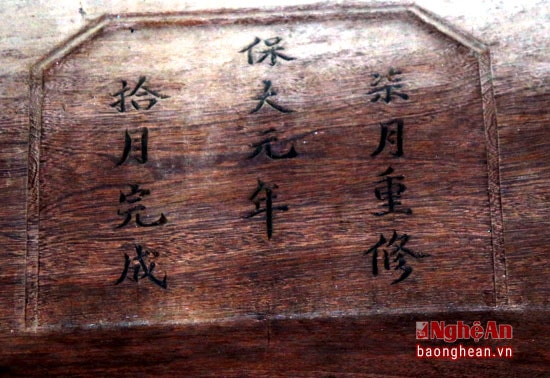 柒月重修
保大元年
拾月完成
Nghệ An
baonghean.vn